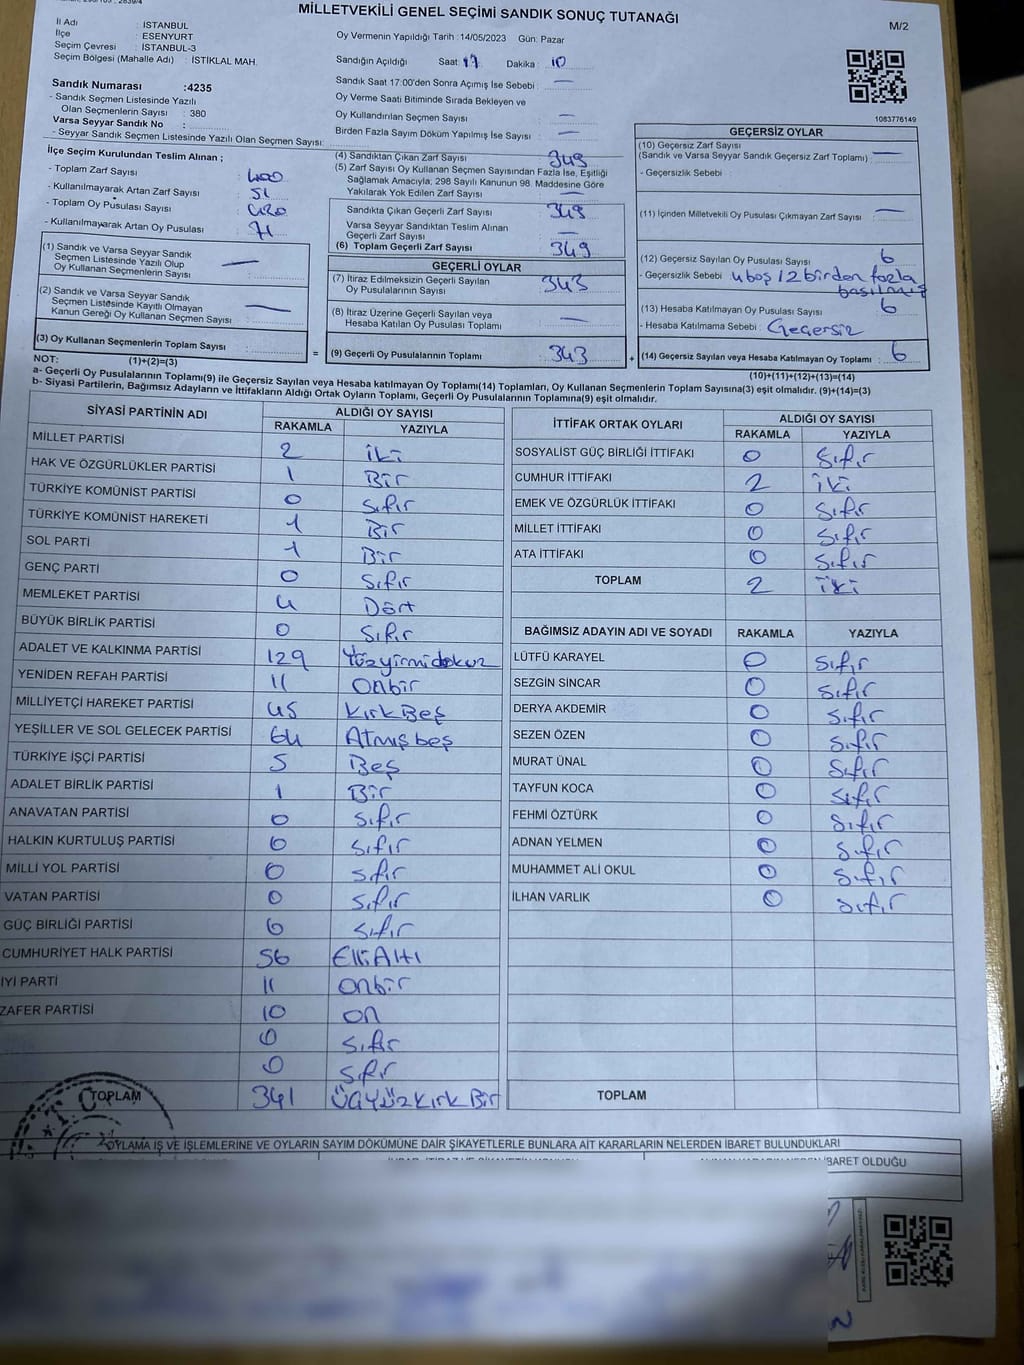 MİLLETVEKİLİ GENEL SEÇİMİ SANDIK SONUÇ TUTANAĞI
M/2
İl Adı : İSTANBUL
İlçe : ESENYURT
Seçim Çevresi : İSTANBUL-3
Seçim Bölgesi (Mahalle Adı) : İSTİKLAL MAH.
Oy Vermenin Yapıldığı Tarih :14/05/2023 Gün: Pazar
Sandığın Açıldığı Saat: 17 Dakika : 10
Sandık Saat 17:00'den Sonra Açımış İse Sebebi : —
Oy Verme Saati Bitiminde Sırada Bekleyen ve
Oy Kullandırılan Seçmen Sayısı : —
Birden Fazla Sayım Döküm Yapılmış İse Sayısı : —
Sandık Numarası :4235
- Sandık Seçmen Listesinde Yazılı
Olan Seçmenlerin Sayısı : 380
Varsa Seyyar Sandık No :
- Seyyar Sandık Seçmen Listesinde Yazılı Olan Seçmen Sayısı:
1083776149
İlçe Seçim Kurulundan Teslim Alınan ;
- Toplam Zarf Sayısı : 400
- Kullanılmayarak Artan Zarf Sayısı : 51
- Toplam Oy Pusulası Sayısı : 420
- Kullanılmayarak Artan Oy Pusulası : 71
(1) Sandık ve Varsa Seyyar Sandık
Seçmen Listesinde Yazılı Olup
Oy Kullanan Seçmenlerin Sayısı : —
(2) Sandık ve Varsa Seyyar Sandık
Seçmen Listesinde Kayıtlı Olmayan
Kanun Gereği Oy Kullanan Seçmen Sayısı : —
(3) Oy Kullanan Seçmenlerin Toplam Sayısı :
(4) Sandıktan Çıkan Zarf Sayısı : 349
(5) Zarf Sayısı Oy Kullanan Seçmen Sayısından Fazla İse, Eşitliği
Sağlamak Amacıyla; 298 Sayılı Kanunun 98. Maddesine Göre
Yakılarak Yok Edilen Zarf Sayısı : —
Sandıkta Çıkan Geçerli Zarf Sayısı : 349
Varsa Seyyar Sandıktan Teslim Alınan
Geçerli Zarf Sayısı : —
(6) Toplam Geçerli Zarf Sayısı : 349
GEÇERLİ OYLAR
(7) İtiraz Edilmeksizin Geçerli Sayılan
Oy Pusulalarının Sayısı : 343
(8) İtiraz Üzerine Geçerli Sayılan veya
Hesaba Katılan Oy Pusulası Toplamı : —
= (9) Geçerli Oy Pusulalarının Toplamı : 343
GEÇERSİZ OYLAR
(10) Geçersiz Zarf Sayısı
(Sandık ve Varsa Seyyar Sandık Geçersiz Zarf Toplamı) : —
- Geçersizlik Sebebi :
(11) İçinden Milletvekili Oy Pusulası Çıkmayan Zarf Sayısı : —
(12) Geçersiz Sayılan Oy Pusulası Sayısı : 6
- Geçersizlik Sebebi : 4 boş / 2 birden fazla
basılmış
(13) Hesaba Katılmayan Oy Pusulası Sayısı : 6
- Hesaba Katılmama Sebebi : Geçersiz
+ (14) Geçersiz Sayılan veya Hesaba Katılmayan Oy Toplamı : 6
NOT: (1)+(2)=(3)
(10)+(11)+(12)+(13)=(14)
a- Geçerli Oy Pusulalarının Toplamı(9) ile Geçersiz Sayılan veya Hesaba katılmayan Oy Toplamı(14) Toplamları, Oy Kullanan Seçmenlerin Toplam Sayısına(3) eşit olmalıdır. (9)+(14)=(3)
b- Siyasi Partilerin, Bağımsız Adayların ve İttifakların Aldığı Ortak Oyların Toplamı, Geçerli Oy Pusulalarının Toplamına(9) eşit olmalıdır.
SİYASİ PARTİNİN ADI ALDIĞI OY SAYISI
RAKAMLA YAZIYLA
MİLLET PARTİSİ 2 iki
HAK VE ÖZGÜRLÜKLER PARTİSİ 1 Bir
TÜRKİYE KOMÜNİST PARTİSİ 0 Sıfır
TÜRKİYE KOMÜNİST HAREKETİ 1 Bir
SOL PARTİ 1 Bir
GENÇ PARTİ 0 Sıfır
MEMLEKET PARTİSİ 4 Dört
BÜYÜK BİRLİK PARTİSİ 0 Sıfır
ADALET VE KALKINMA PARTİSİ 129 Yüzyirmidokuz
YENİDEN REFAH PARTİSİ 11 Onbir
MİLLİYETÇİ HAREKET PARTİSİ 45 Kırk Beş
YEŞİLLER VE SOL GELECEK PARTİSİ 64 Atmış beş
TÜRKİYE İŞÇİ PARTİSİ 5 Beş
ADALET BİRLİK PARTİSİ 1 Bir
ANAVATAN PARTİSİ 0 Sıfır
HALKIN KURTULUŞ PARTİSİ 0 Sıfır
MİLLİ YOL PARTİSİ 0 Sıfır
VATAN PARTİSİ 0 Sıfır
GÜÇ BİRLİĞİ PARTİSİ 0 Sıfır
CUMHURİYET HALK PARTİSİ 56 Elli Altı
İYİ PARTİ 11 Onbir
ZAFER PARTİSİ 10 On
0 Sıfır
0 Sıfır
TOPLAM 341 Üçyüz Kırk Bir
İTTİFAK ORTAK OYLARI ALDIĞI OY SAYISI
RAKAMLA YAZIYLA
SOSYALİST GÜÇ BİRLİĞİ İTTİFAKI 0 Sıfır
CUMHUR İTTİFAKI 2 iki
EMEK VE ÖZGÜRLÜK İTTİFAKI 0 Sıfır
MİLLET İTTİFAKI 0 Sıfır
ATA İTTİFAKI 0 Sıfır
TOPLAM 2 iki
BAĞIMSIZ ADAYIN ADI VE SOYADI RAKAMLA YAZIYLA
LÜTFÜ KARAYEL 0 Sıfır
SEZGİN SİNCAR 0 Sıfır
DERYA AKDEMİR 0 Sıfır
SEZEN ÖZEN 0 Sıfır
MURAT ÜNAL 0 Sıfır
TAYFUN KOCA 0 Sıfır
FEHMİ ÖZTÜRK 0 Sıfır
ADNAN YELMEN 0 Sıfır
MUHAMMET ALİ OKUL 0 Sıfır
İLHAN VARLIK 0 Sıfır
TOPLAM
OYLAMA İŞ VE İŞLEMLERİNE VE OYLARIN SAYIM DÖKÜMÜNE DAİR ŞİKAYETLERLE BUNLARA AİT KARARLARIN NELERDEN İBARET BULUNDUKLARI
İBARET OLDUĞU